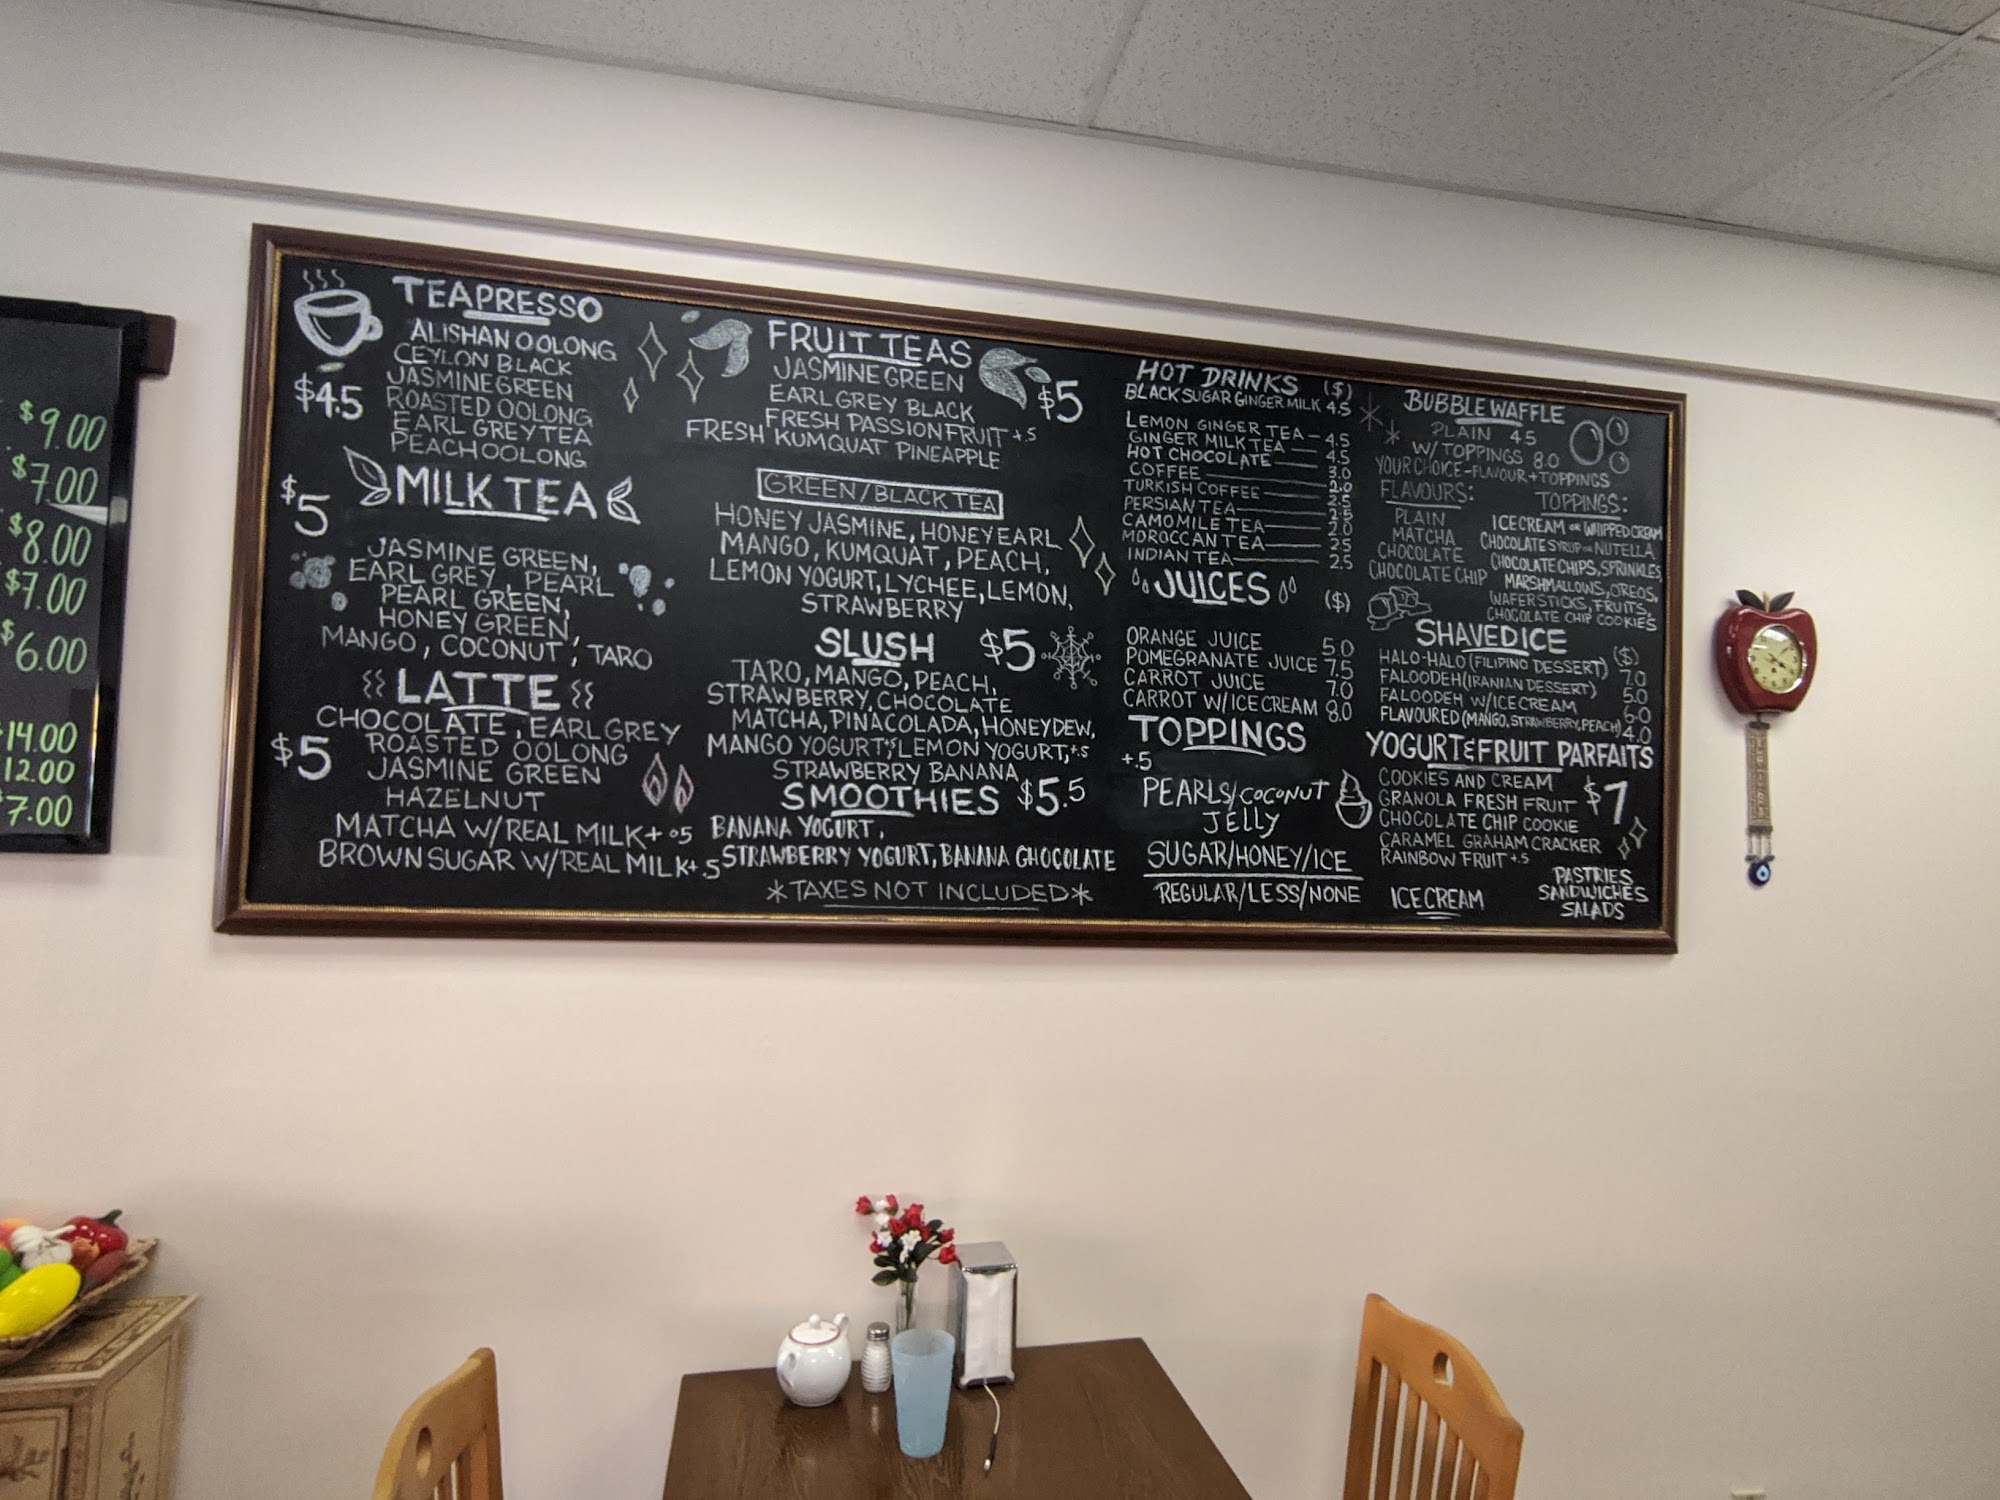 $9.00
$7.00
$8.00
$7.00
$6.00
14.00
12.00
7.00
TEAPRESSO
ALISHAN OOLONG
CEYLON BLACK
JASMINE GREEN
$4.5
ROASTED OOLONG
EARL GREY TEA
PEACH OOLONG
MILK TEA
$5
JASMINE GREEN,
EARL GREY, PEARL
PEARL GREEN,
HONEY GREEN,
MANGO, COCONUT, TARO
LATTE
CHOCOLATE, EARL GREY
$5
ROASTED OOLONG
JASMINE GREEN
HAZELNUT
MATCHA W/REAL MILK+ .5
BROWN SUGAR W/REAL MILK+ .5
FRUIT TEAS
JASMINE GREEN
$5
EARL GREY BLACK
FRESH PASSIONFRUIT +.5
FRESH KUMQUAT PINEAPPLE
GREEN/BLACK TEA
HONEY JASMINE, HONEY EARL
MANGO, KUMQUAT, PEACH,
LEMON YOGURT, LYCHEE, LEMON,
STRAWBERRY
SLUSH $5
TARO, MANGO, PEACH,
STRAWBERRY, CHOCOLATE
MATCHA, PINACOLADA, HONEYDEW,
MANGO YOGURT+.5, LEMON YOGURT,+.5
STRAWBERRY BANANA
SMOOTHIES $5.5
BANANA YOGURT,
STRAWBERRY YOGURT, BANANA CHOCOLATE
*TAXES NOT INCLUDED*
HOT DRINKS ($)
BLACK SUGAR GINGER MILK 4.5
LEMON GINGER TEA — 4.5
GINGER MILK TEA — 4.5
HOT CHOCOLATE — 3.0
COFFEE — 2.0
TURKISH COFFEE — 2.5
PERSIAN TEA — 2.5
CAMOMILE TEA — 2.0
MOROCCAN TEA — 2.5
INDIAN TEA — 2.5
JUICES ($)
ORANGE JUICE 5.0
POMEGRANATE JUICE 7.5
CARROT JUICE 7.0
CARROT W/ICE CREAM 8.0
TOPPINGS
+.5
PEARLS/COCONUT
JELLY
SUGAR/HONEY/ICE
REGULAR/LESS/NONE
BUBBLE WAFFLE
PLAIN 4.5
W/TOPPINGS 8.0
YOUR CHOICE-FLAVOUR+TOPPINGS
FLAVOURS:
PLAIN
MATCHA
CHOCOLATE
CHOCOLATE CHIP
TOPPINGS:
ICE CREAM OR WHIPPED CREAM
CHOCOLATE SYRUP OR NUTELLA
CHOCOLATE CHIPS, SPRINKLES,
MARSHMALLOWS, OREOS,
WAFER STICKS, FRUITS,
CHOCOLATE CHIP COOKIES
SHAVED ICE
($)
HALO-HALO (FILIPINO DESSERT) 7.0
FALOODEH (IRANIAN DESSERT) 5.0
FALOODEH W/ICE CREAM 6.0
FLAVOURED (MANGO, STRAWBERRY, PEACH) 4.0
YOGURT & FRUIT PARFAITS
COOKIES AND CREAM
GRANOLA FRESH FRUIT $7
CHOCOLATE CHIP COOKIE
CARAMEL GRAHAM CRACKER
RAINBOW FRUIT +.5
ICE CREAM
PASTRIES
SANDWICHES
SALADS